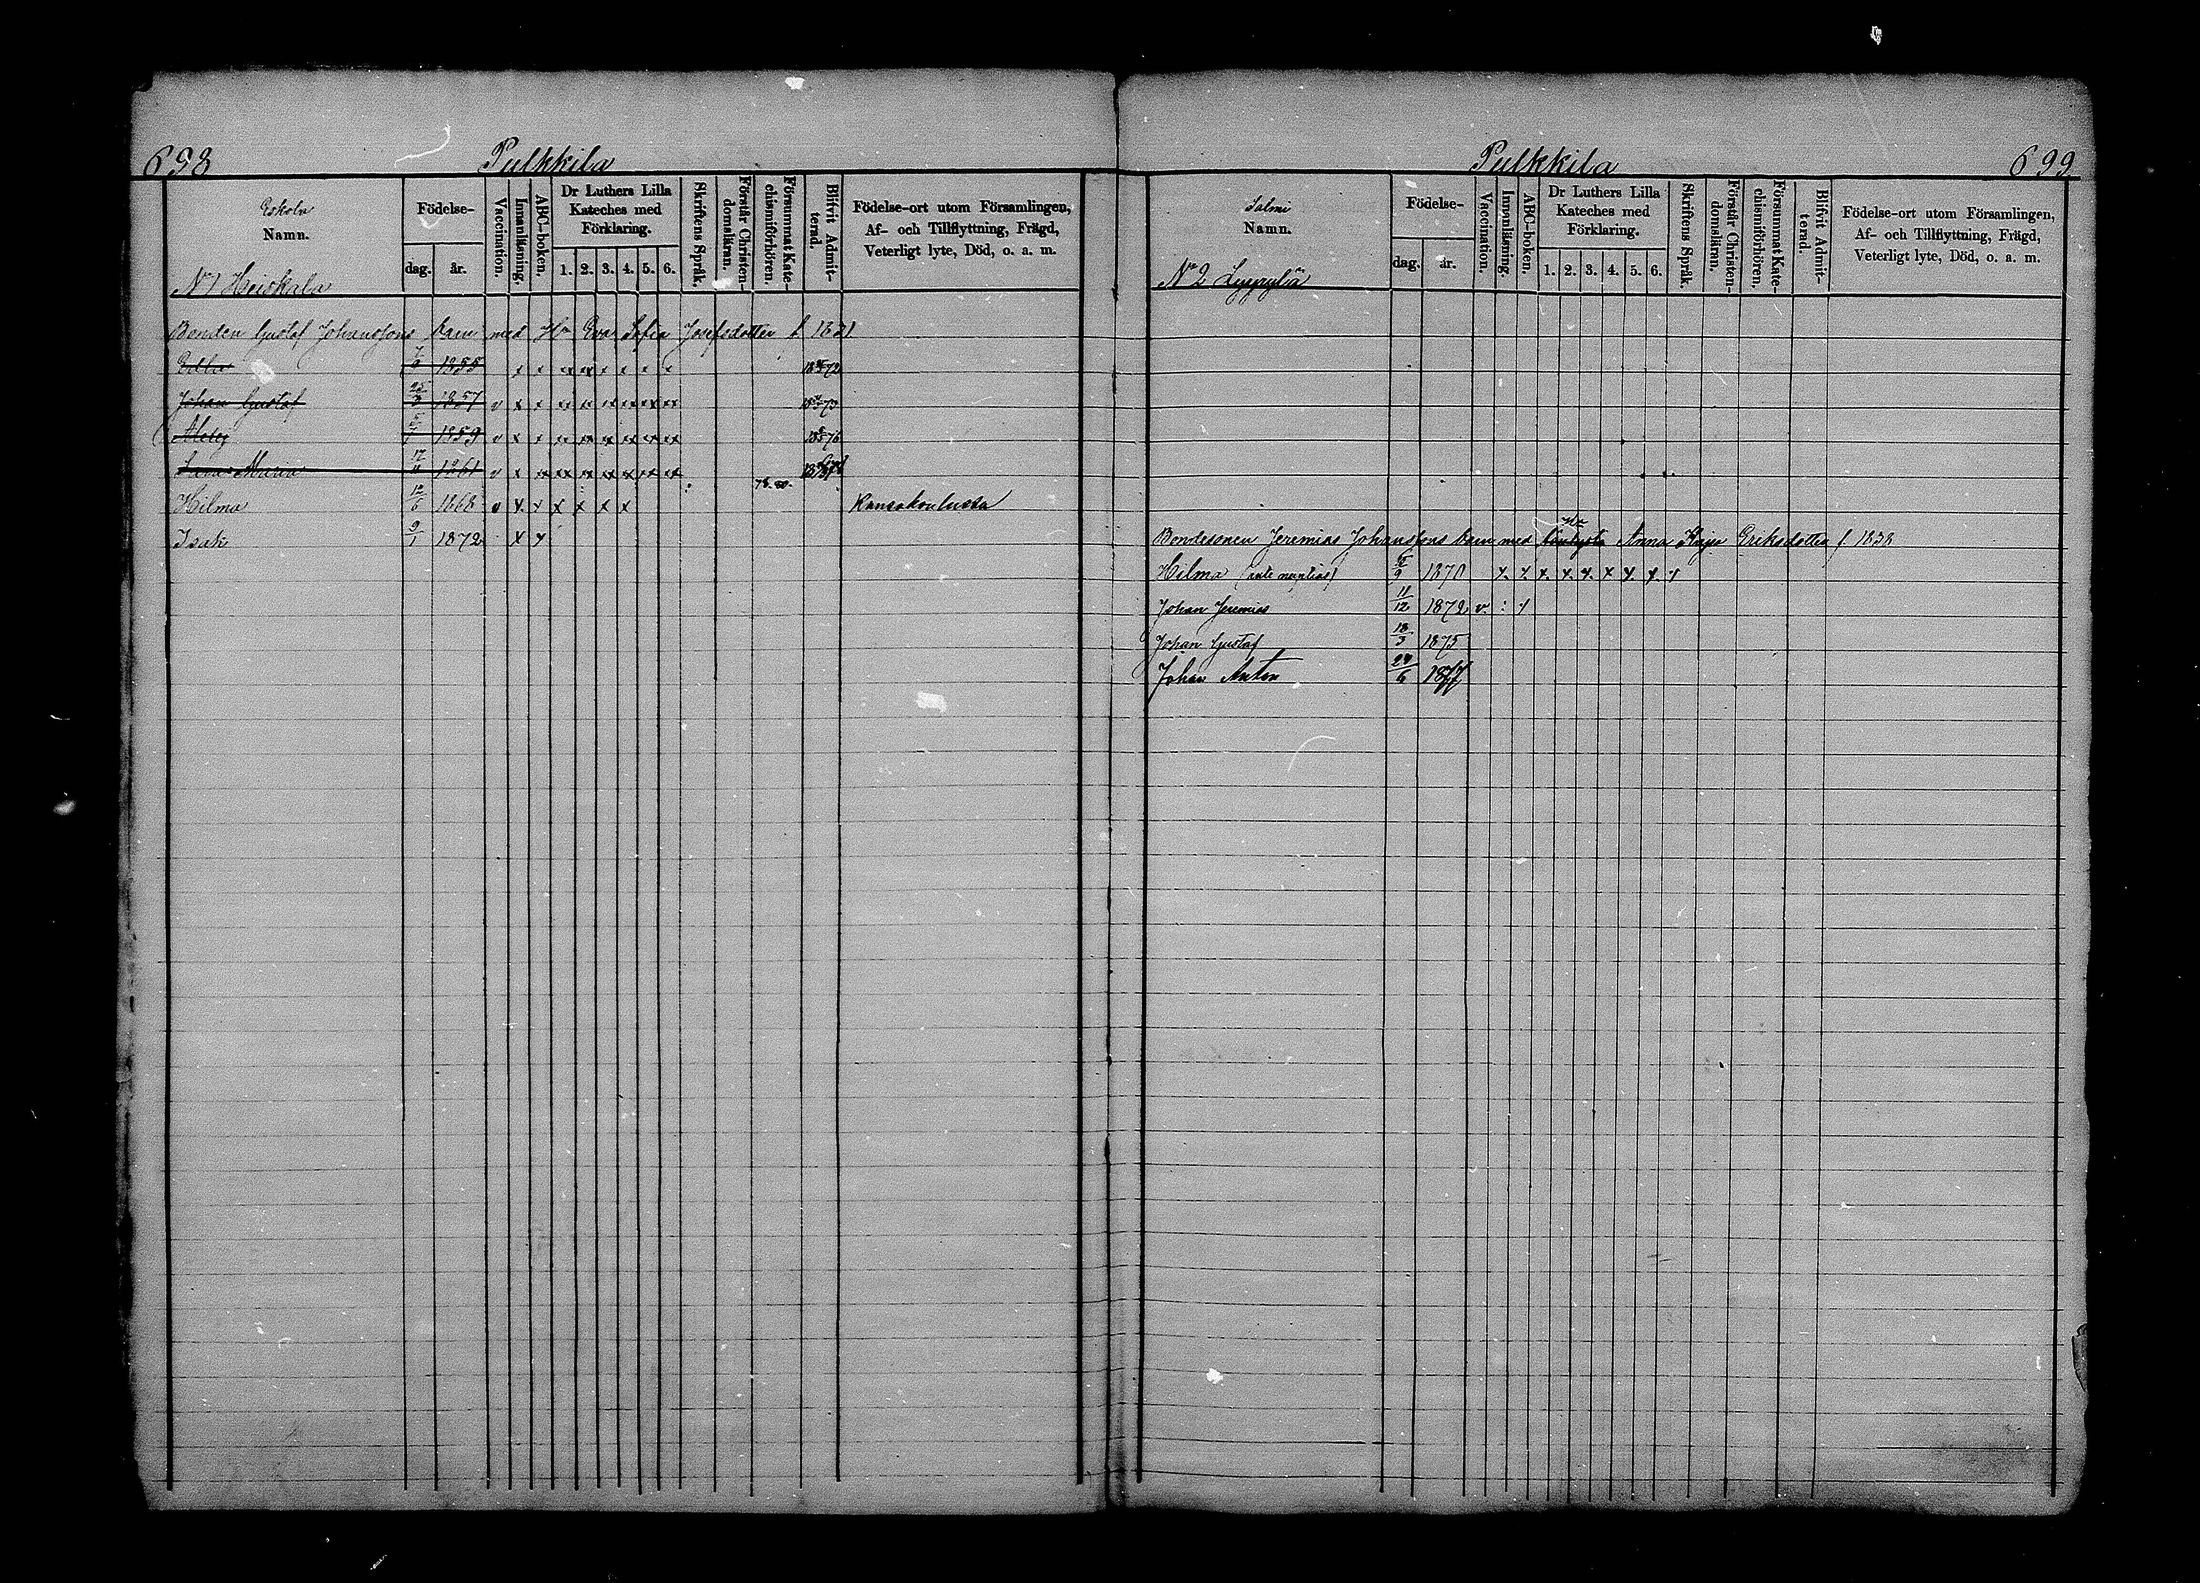 698 Pulkkila
Eskola
Namn.
Födelse-
dag. år.
Vaccination.
Innanläsning.
ABC-boken.
Dr Luthers Lilla Kateches med Förklaring.
1. 2. 3. 4. 5. 6.
Skriftens Språk.
Förstår Christendomsläran.
Försummat Katechismiförhören.
Blifvit Admitterad.
Födelse-ort utom Församlingen,
Af- och Tillflyttning, Frägd,
Veterligt lyte, Död, o. a. m.
No 1 Heiskala
Bonden Gustaf Johanssons barn med Hu Eva Sofia Josefsdotter f. 1831
1855 x x xx xx x x x x
Johan Gustaf 25/3 1857 v x x xx xx xx xx xx xx
1859 v x x xx xx xx xx xx xx
Maria 1861 v x xx xx xx xx xx xx xx
78. 80.
Hilma 12/6 1868 v x x x x x x Kansakoulussa
Isak 9/1 1872 x x
Pulkkila 699
Salmi
Namn.
Födelse-
dag. år.
Vaccination.
Innanläsning.
ABC-boken.
Dr Luthers Lilla Kateches med Förklaring.
1. 2. 3. 4. 5. 6.
Skriftens Språk.
Förstår Christendomsläran.
Försummat Katechismiförhören.
Blifvit Admitterad.
Födelse-ort utom Församlingen,
Af- och Tillflyttning, Frägd,
Veterligt lyte, Död, o. a. m.
No 2 Lyyrylä
Bondesonen Jeremias Johanssons barn med Hu Anna Kajsa Eriksdotter f. 1838
Hilma 1870 x x x x x x x x x
Johan Jeremias 11/12 1872 v : x
Johan Gustaf 18/3 1875
Johan Anton 24/6 1877